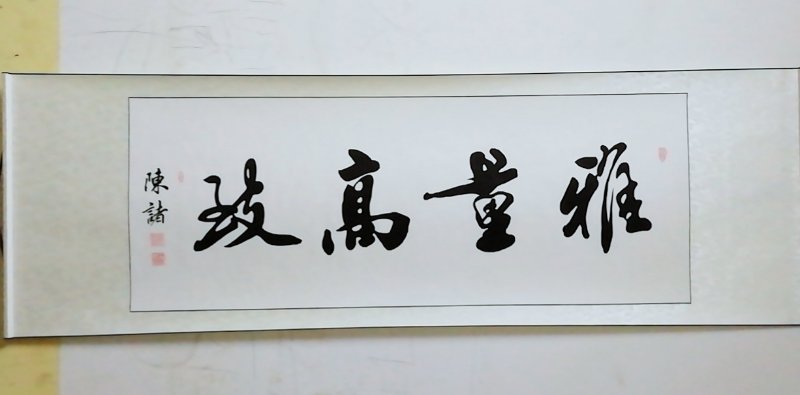 雅量高致
陳諸